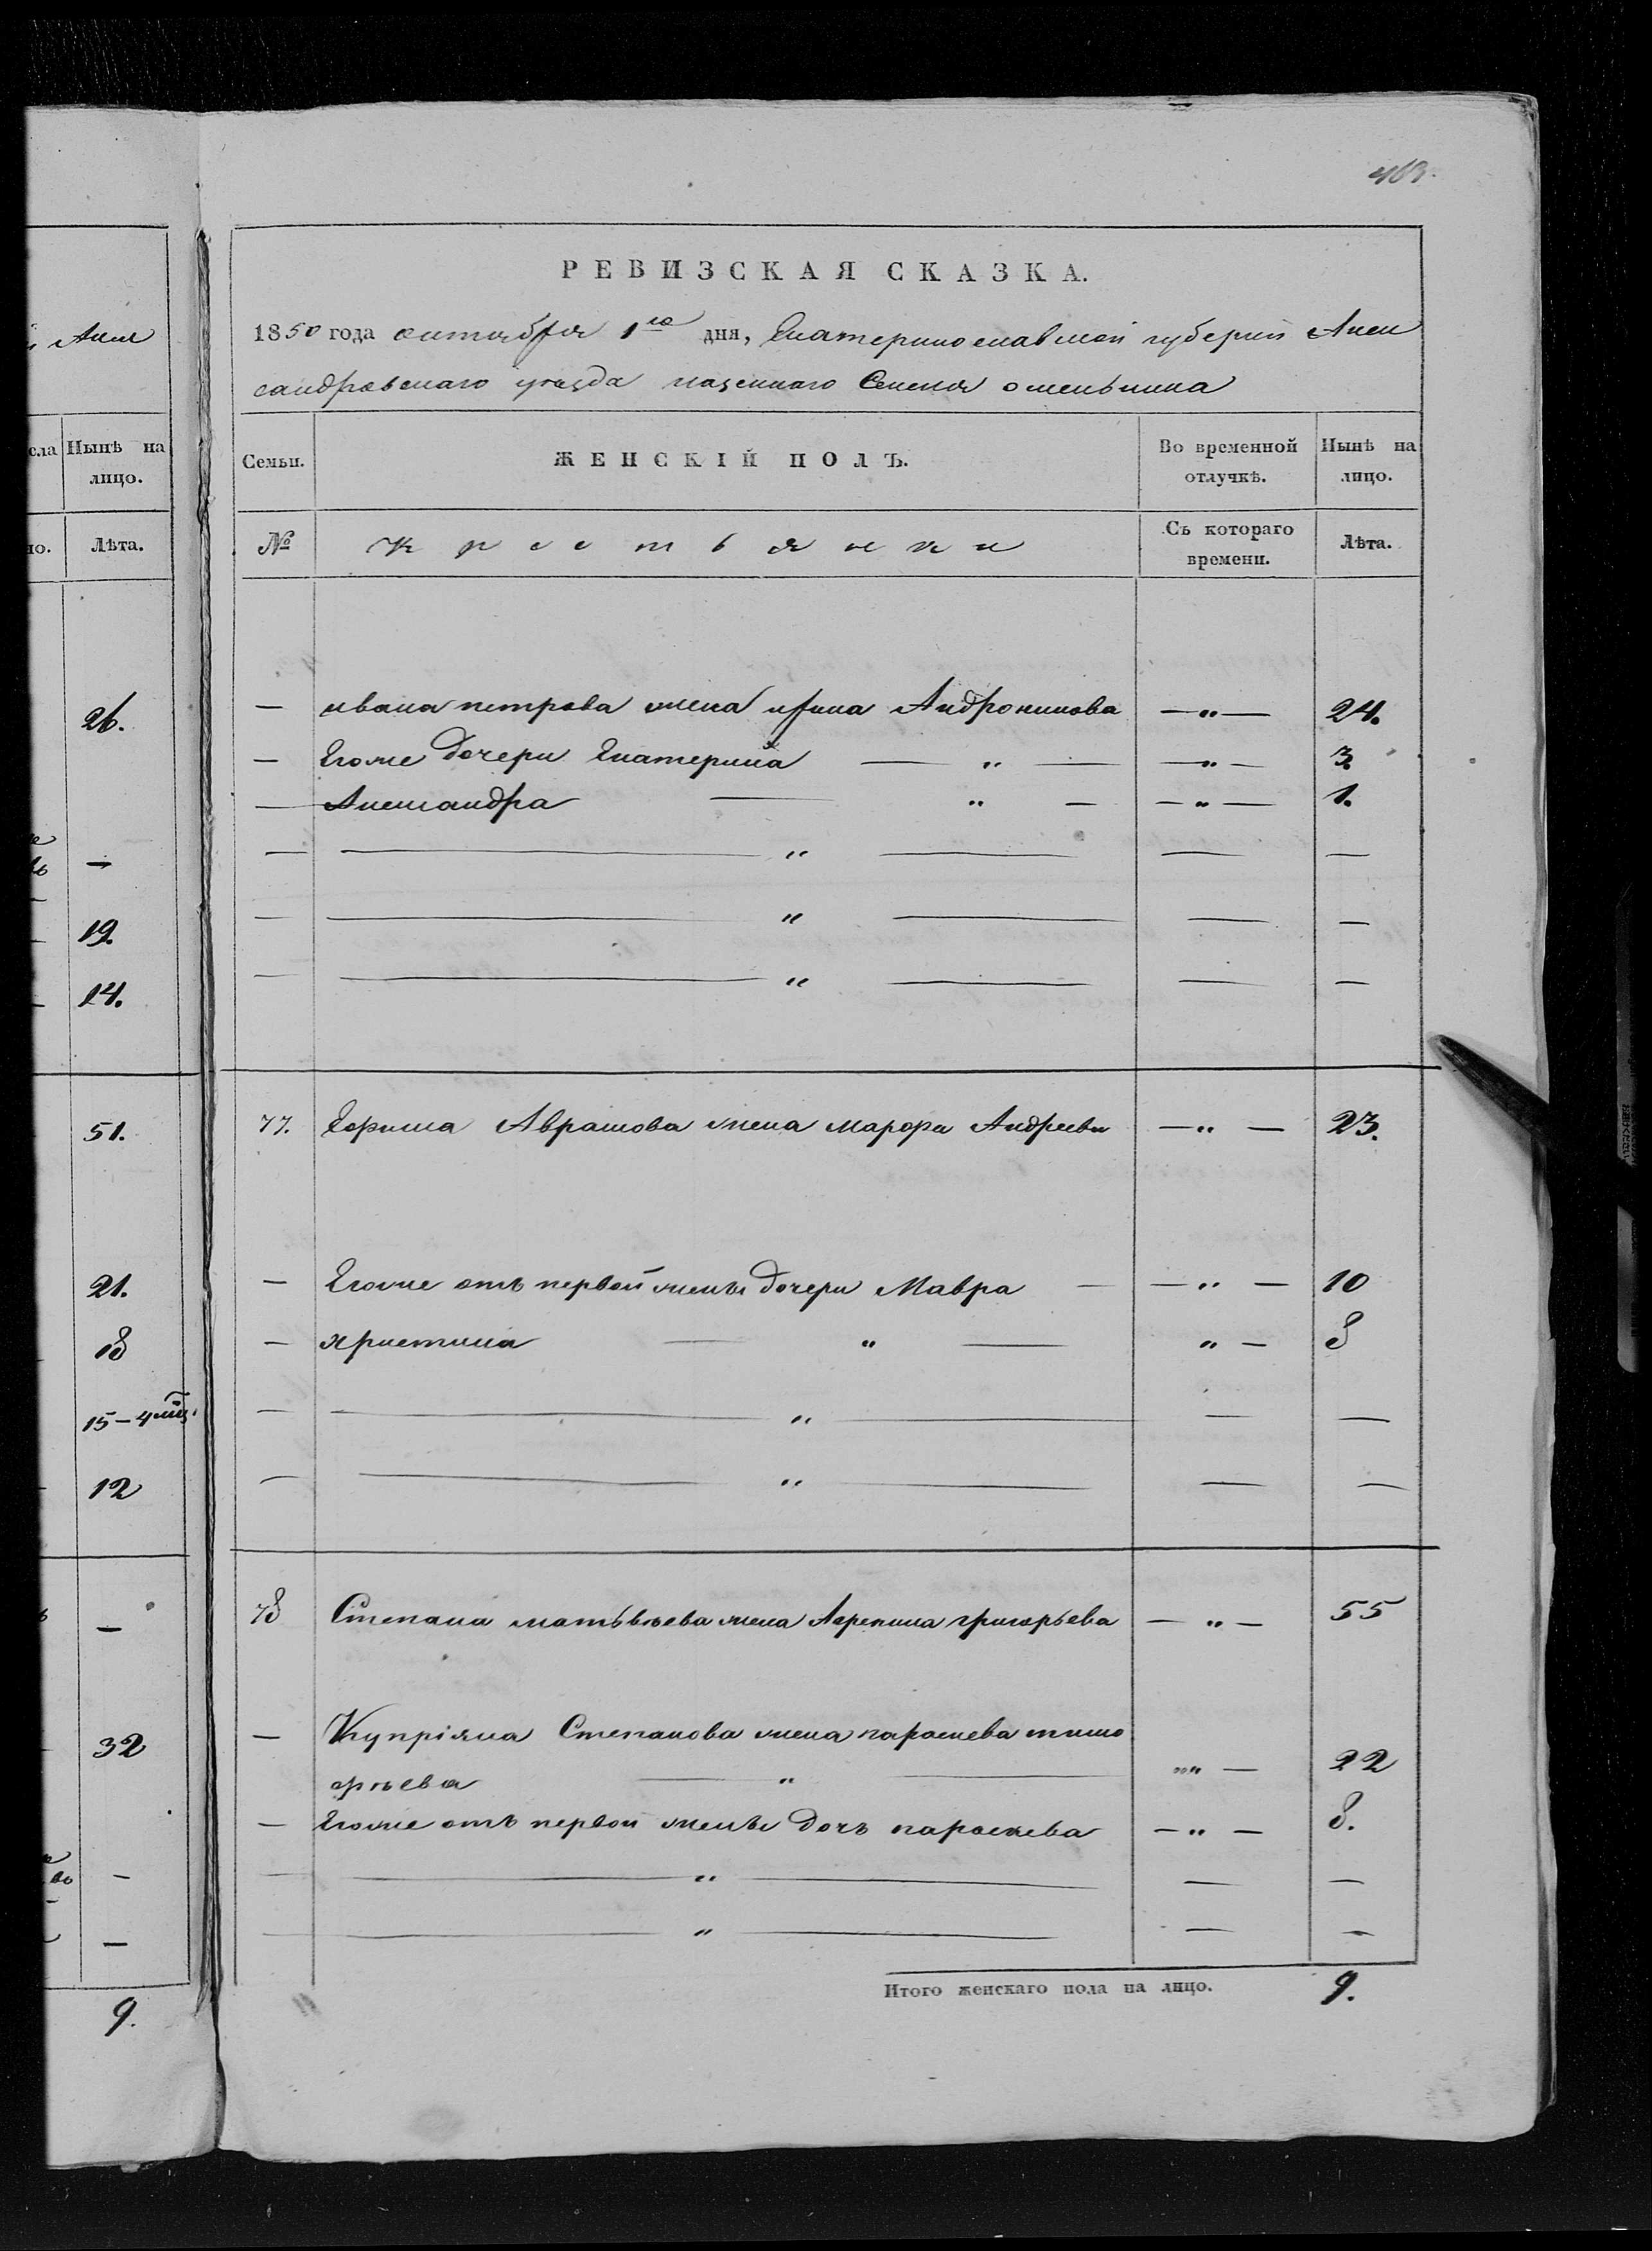 463.
РЕВИЗСКАЯ СКАЗКА.
1850 года октября 1го дня, Екатеринославской губерніи Алек
сандровскаго уезда казеннаго Селенія омельника
Семьи.
ЖЕНСКІЙ ПОЛЪ.
Во временной отлучкѣ.
Нынѣ на лицо.
№
Крестьянки
Съ котораго времени.
Лѣта.
— ивана петрова жена ирина Андроникова —"— 24.
— Егоже дочери Екатерина — " — —"— 3.
— Александра — " — —"— 1.
— — " — — —
— — " — — —
— — " — — —
77. Ефима Аврамова жена марфа Андреева —"— 23.
— Егоже отъ первой жены дочери Мавра — —"— 10
— христина — " — "— 8
— — " — — —
— — " — — —
78 Степана матьвѣева жена Агрепина григорьева —"— 55
— Купріяна Степанова жена параскева тимо
фѣева — " — "" — 22
— Егоже отъ первой жены дочь параскева —"— 8.
— — " — — —
— — " — — —
Итого женскаго пола на лицо. 9.
Алек
сла
Нынѣ на лицо.
но.
Лѣта.
26.
—
19.
14.
51.
21.
18
15 – 4 мѣц.
12
—
32
—
—
9.